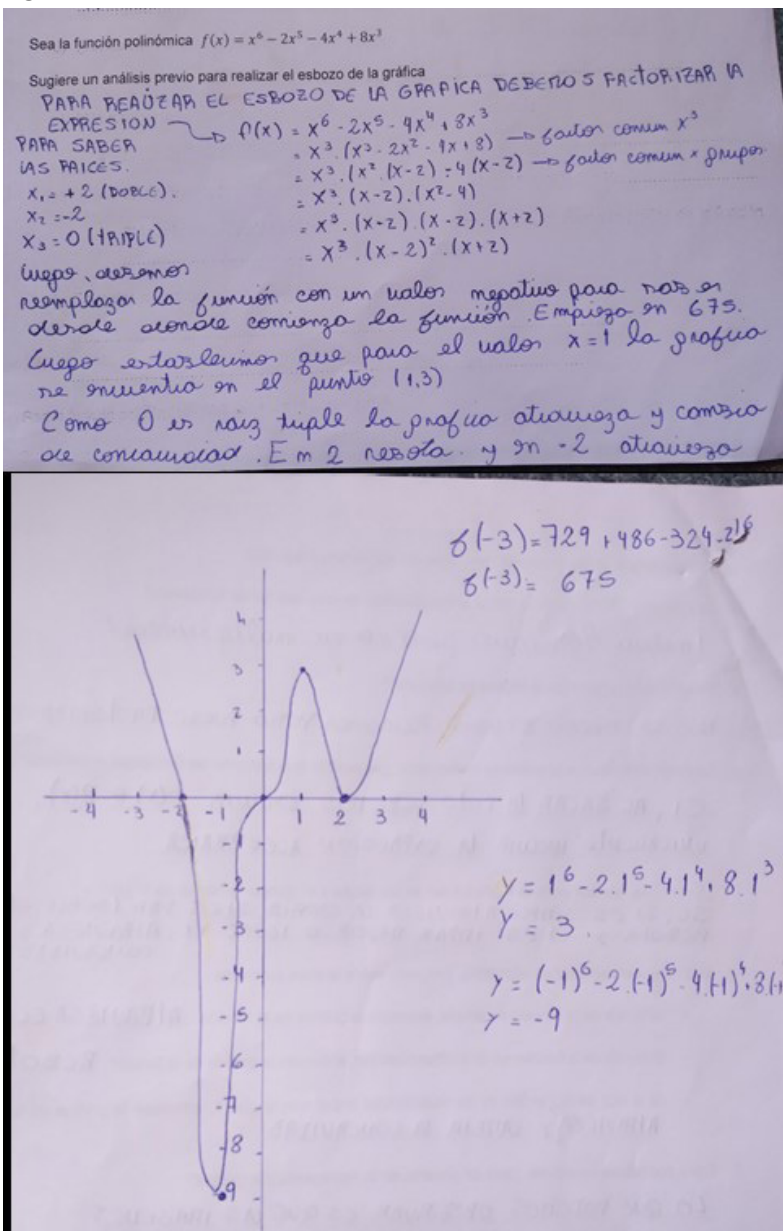 Sea la función polinómica f(x) = x⁶ − 2x⁵ − 4x⁴ + 8x³
Sugiere un análisis previo para realizar el esbozo de la gráfica
PARA REALIZAR EL ESBOZO DE LA GRAFICA DEBEMOS FACTORIZAR LA
EXPRESION → f(x) = x⁶ - 2x⁵ - 4x⁴ + 8x³
PARA SABER
LAS RAICES.
= x³. (x³ - 2x² - 4x + 8) → factor comun x³
= x³. (x². (x-2) - 4 (x-2) → factor comun x grupos
x₁ = +2 (DOBLE).
= x³. (x-2). (x²-4)
x₂ = -2
= x³. (x-2). (x-2). (x+2)
x₃ = 0 (TRIPLE)
= x³. (x-2)². (x+2)
Luego, debemos
reemplazar la función con un valor negativo para saber
desde donde comienza la función. Empieza en 675.
Luego establecimos que para el valor x=1 la grafica
se encuentra en el punto (1,3)
Como 0 es raiz triple la grafica atraviesa y cambia
de concavidad. En 2 rebota. y en -2 atraviesa
f(-3) = 729 + 486 - 324 - 216
f(-3) = 675
4
3
2
1
-4 -3 -2 -1 1 2 3 4
-1
-2
-3
-4
-5
-6
-7
-8
-9
y = 1⁶ - 2.1⁵ - 4.1⁴ + 8.1³
y = 3.
y = (-1)⁶ - 2.(-1)⁵ - 4.(-1)⁴ + 8.(-1
y = -9